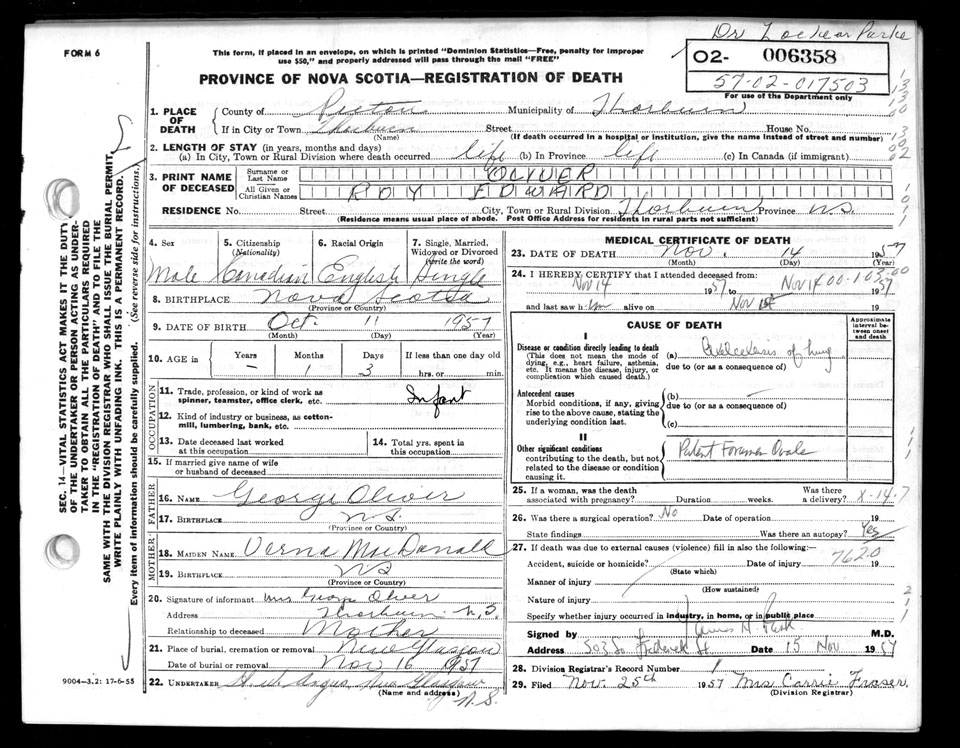 Dr Lockear Parke
FORM 6
This form, if placed in an envelope, on which is printed "Dominion Statistics—Free, penalty for improper
use $50," and properly addressed will pass through the mail "FREE"
O2- 006358
57-02-017503
For use of the Department only
PROVINCE OF NOVA SCOTIA—REGISTRATION OF DEATH
1. PLACE OF DEATH
County of Pictou Municipality of Thorburn
If in City or Town Thorburn Street House No.
(Name) (If death occurred in a hospital or institution, give the name instead of street and number)
2. LENGTH OF STAY (in years, months and days)
(a) In City, Town or Rural Division where death occurred life (b) In Province life (c) In Canada (if immigrant)
3. PRINT NAME OF DECEASED
Surname or Last Name OLIVER
All Given or Christian Names ROY EDWARD
RESIDENCE No. Street City, Town or Rural Division Thorburn Province N.S.
(Residence means usual place of abode. Post Office Address for residents in rural parts not sufficient)
4. Sex 5. Citizenship (Nationality) 6. Racial Origin 7. Single, Married, Widowed or Divorced (write the word)
Male Canadian English Single
8. BIRTHPLACE Nova Scotia
(Province or Country)
9. DATE OF BIRTH Oct. 11 1957
(Month) (Day) (Year)
10. AGE in Years Months Days If less than one day old
— 1 3 hrs. or min.
OCCUPATION
11. Trade, profession, or kind of work as
spinner, teamster, office clerk, etc. Infant
12. Kind of industry or business, as cotton-
mill, lumbering, bank, etc.
13. Date deceased last worked
at this occupation
14. Total yrs. spent in
this occupation
15. If married give name of wife
or husband of deceased
FATHER
16. NAME George Oliver
17. BIRTHPLACE N.S.
(Province or Country)
MOTHER
18. MAIDEN NAME Verna MacDonald
19. BIRTHPLACE N.S.
(Province or Country)
20. Signature of informant Mrs George Oliver
Address Thorburn N.S.
Relationship to deceased Mother
21. Place of burial, cremation or removal New Glasgow
Date of burial or removal Nov 16 1957
22. UNDERTAKER Angus New Glasgow
(Name and address) N.S.
MEDICAL CERTIFICATE OF DEATH
23. DATE OF DEATH Nov. 14 1957
(Month) (Day) (Year)
24. I HEREBY CERTIFY that I attended deceased from:
Nov 14 1957 Nov 14 1957
and last saw h im alive on Nov 19
CAUSE OF DEATH
Approximate interval between onset and death
I
Disease or condition directly leading to death
(This does not mean the mode of
dying, e.g., heart failure, asthenia,
etc. It means the disease, injury, or
complication which caused death.)
(a) Atelectasis of lung
due to (or as a consequence of)
Antecedent causes
Morbid conditions, if any, giving
rise to the above cause, stating the
underlying condition last.
(b) —
due to (or as a consequence of)
(c)
II
Other significant conditions
contributing to the death, but not
related to the disease or condition
causing it.
Patent Foramen Ovale
25. If a woman, was the death
associated with pregnancy? Duration weeks. Was there
a delivery? X-14-7
26. Was there a surgical operation? No Date of operation 19
State findings Was there an autopsy? Yes
27. If death was due to external causes (violence) fill in also the following:—
7620
Accident, suicide or homicide? Date of injury 19
(State which)
Manner of injury
(How sustained)
Nature of injury
Specify whether injury occurred in industry, in home, or in public place
Signed by James H. Park M.D.
Address 303 So. Frederick St Date 15 Nov 1957
28. Division Registrar's Record Number 1
29. Filed Nov. 25th 1957 Mrs Carrie Fraser.
(Division Registrar)
SEC. 14—VITAL STATISTICS ACT MAKES IT THE DUTY
OF THE UNDERTAKER OR PERSON ACTING AS UNDER-
TAKER TO OBTAIN ALL THE PARTICULARS REQUIRED
IN THE "REGISTRATION OF DEATH" AND TO FILE THE
SAME WITH THE DIVISION REGISTRAR WHO SHALL ISSUE THE BURIAL PERMIT.
WRITE PLAINLY WITH UNFADING INK. THIS IS A PERMANENT RECORD.
Every item of information should be carefully supplied. (See reverse side for instructions.)
9004-3.2: 17-6-55